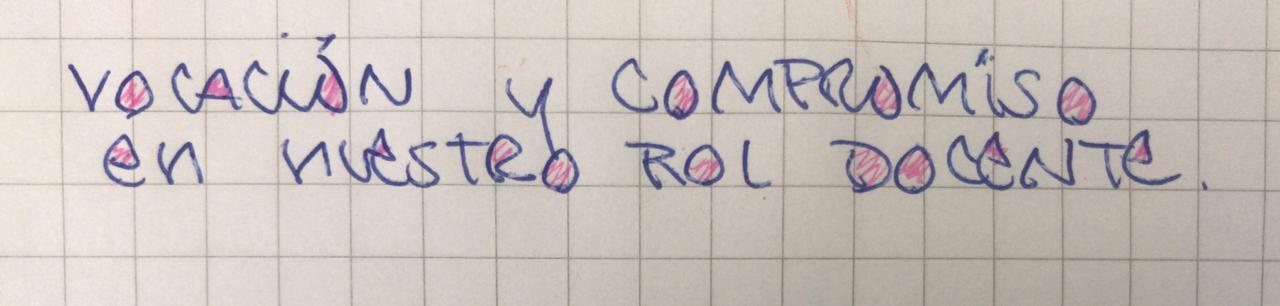 VOCACIÓN y COMPROMISO
en nuestro ROL DOCENTE.